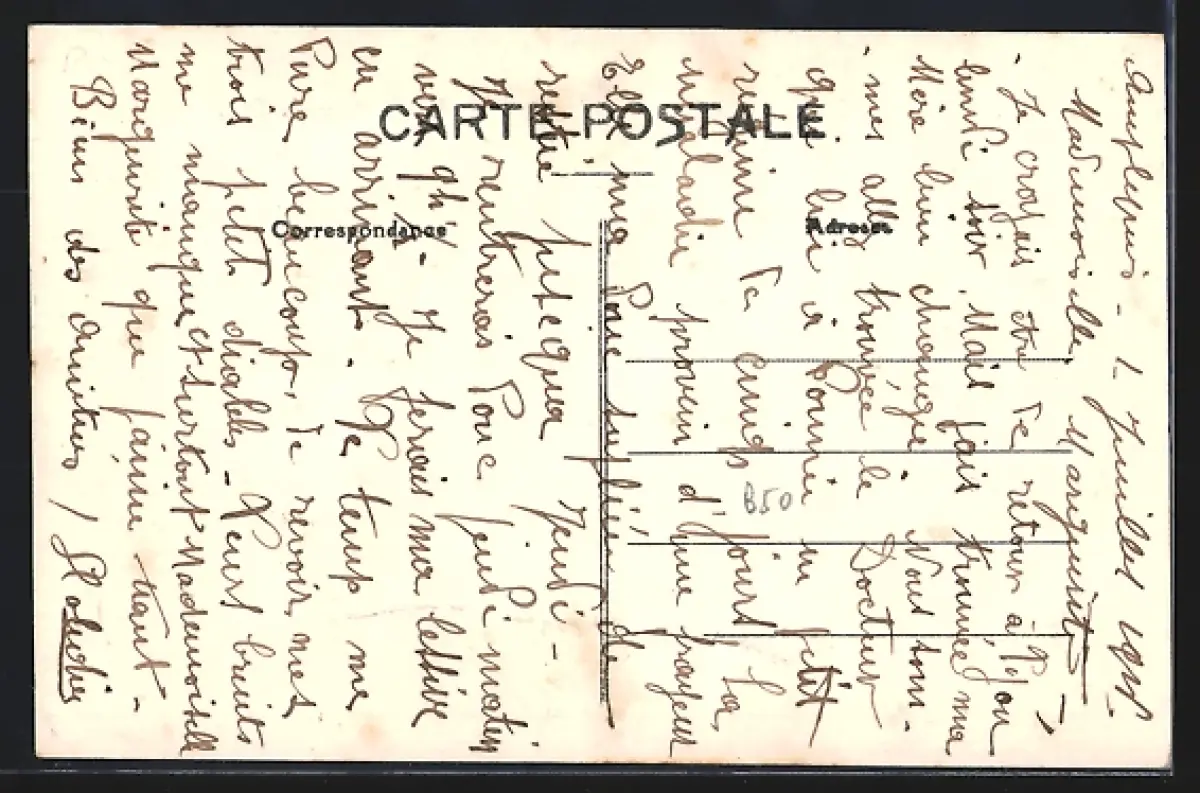 CARTE POSTALE
Correspondance
Adresse
B50
Juillet
Mademoiselle Marguerite
- Je croyais être de retour à Lyon
lundi soir, Mais j'ais trouvée ma
Mère bien changée. Nous som-
- mes allé trouvée le Docteur
qui lui à Donnée un petit
régime de cinqs jours. La
maladie provien d'une frayeur
Elle ma Donc supliée de
resté Jeudi -
Je rentrerais Donc jeudi matin
vers 9h Je ferais ma lessive
en arrivant. Le temp me
Dure beaucoup, de revoir mes
trois petit diables - Leurs bruits
me manque et surtout Mademoiselle
Marguerite que j'aime tant -
Bien des Amitiés /